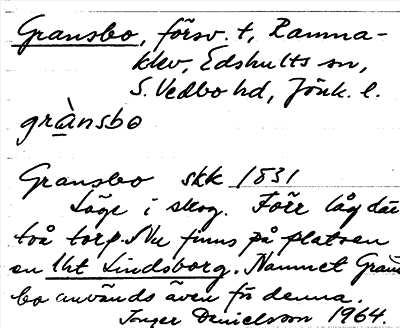 Gransbo, försv. t, Ramna-
klev, Edshults sn,
S. Vedbo hd, Jönk. l.
grànsbo
Gransbo skk 1831
Läge i skog. Förr låg där
två torp. Nu finns på platsen
en lht Lindsborg. Namnet Grans
bo används även för denna.
Inger Danielsson 1964.